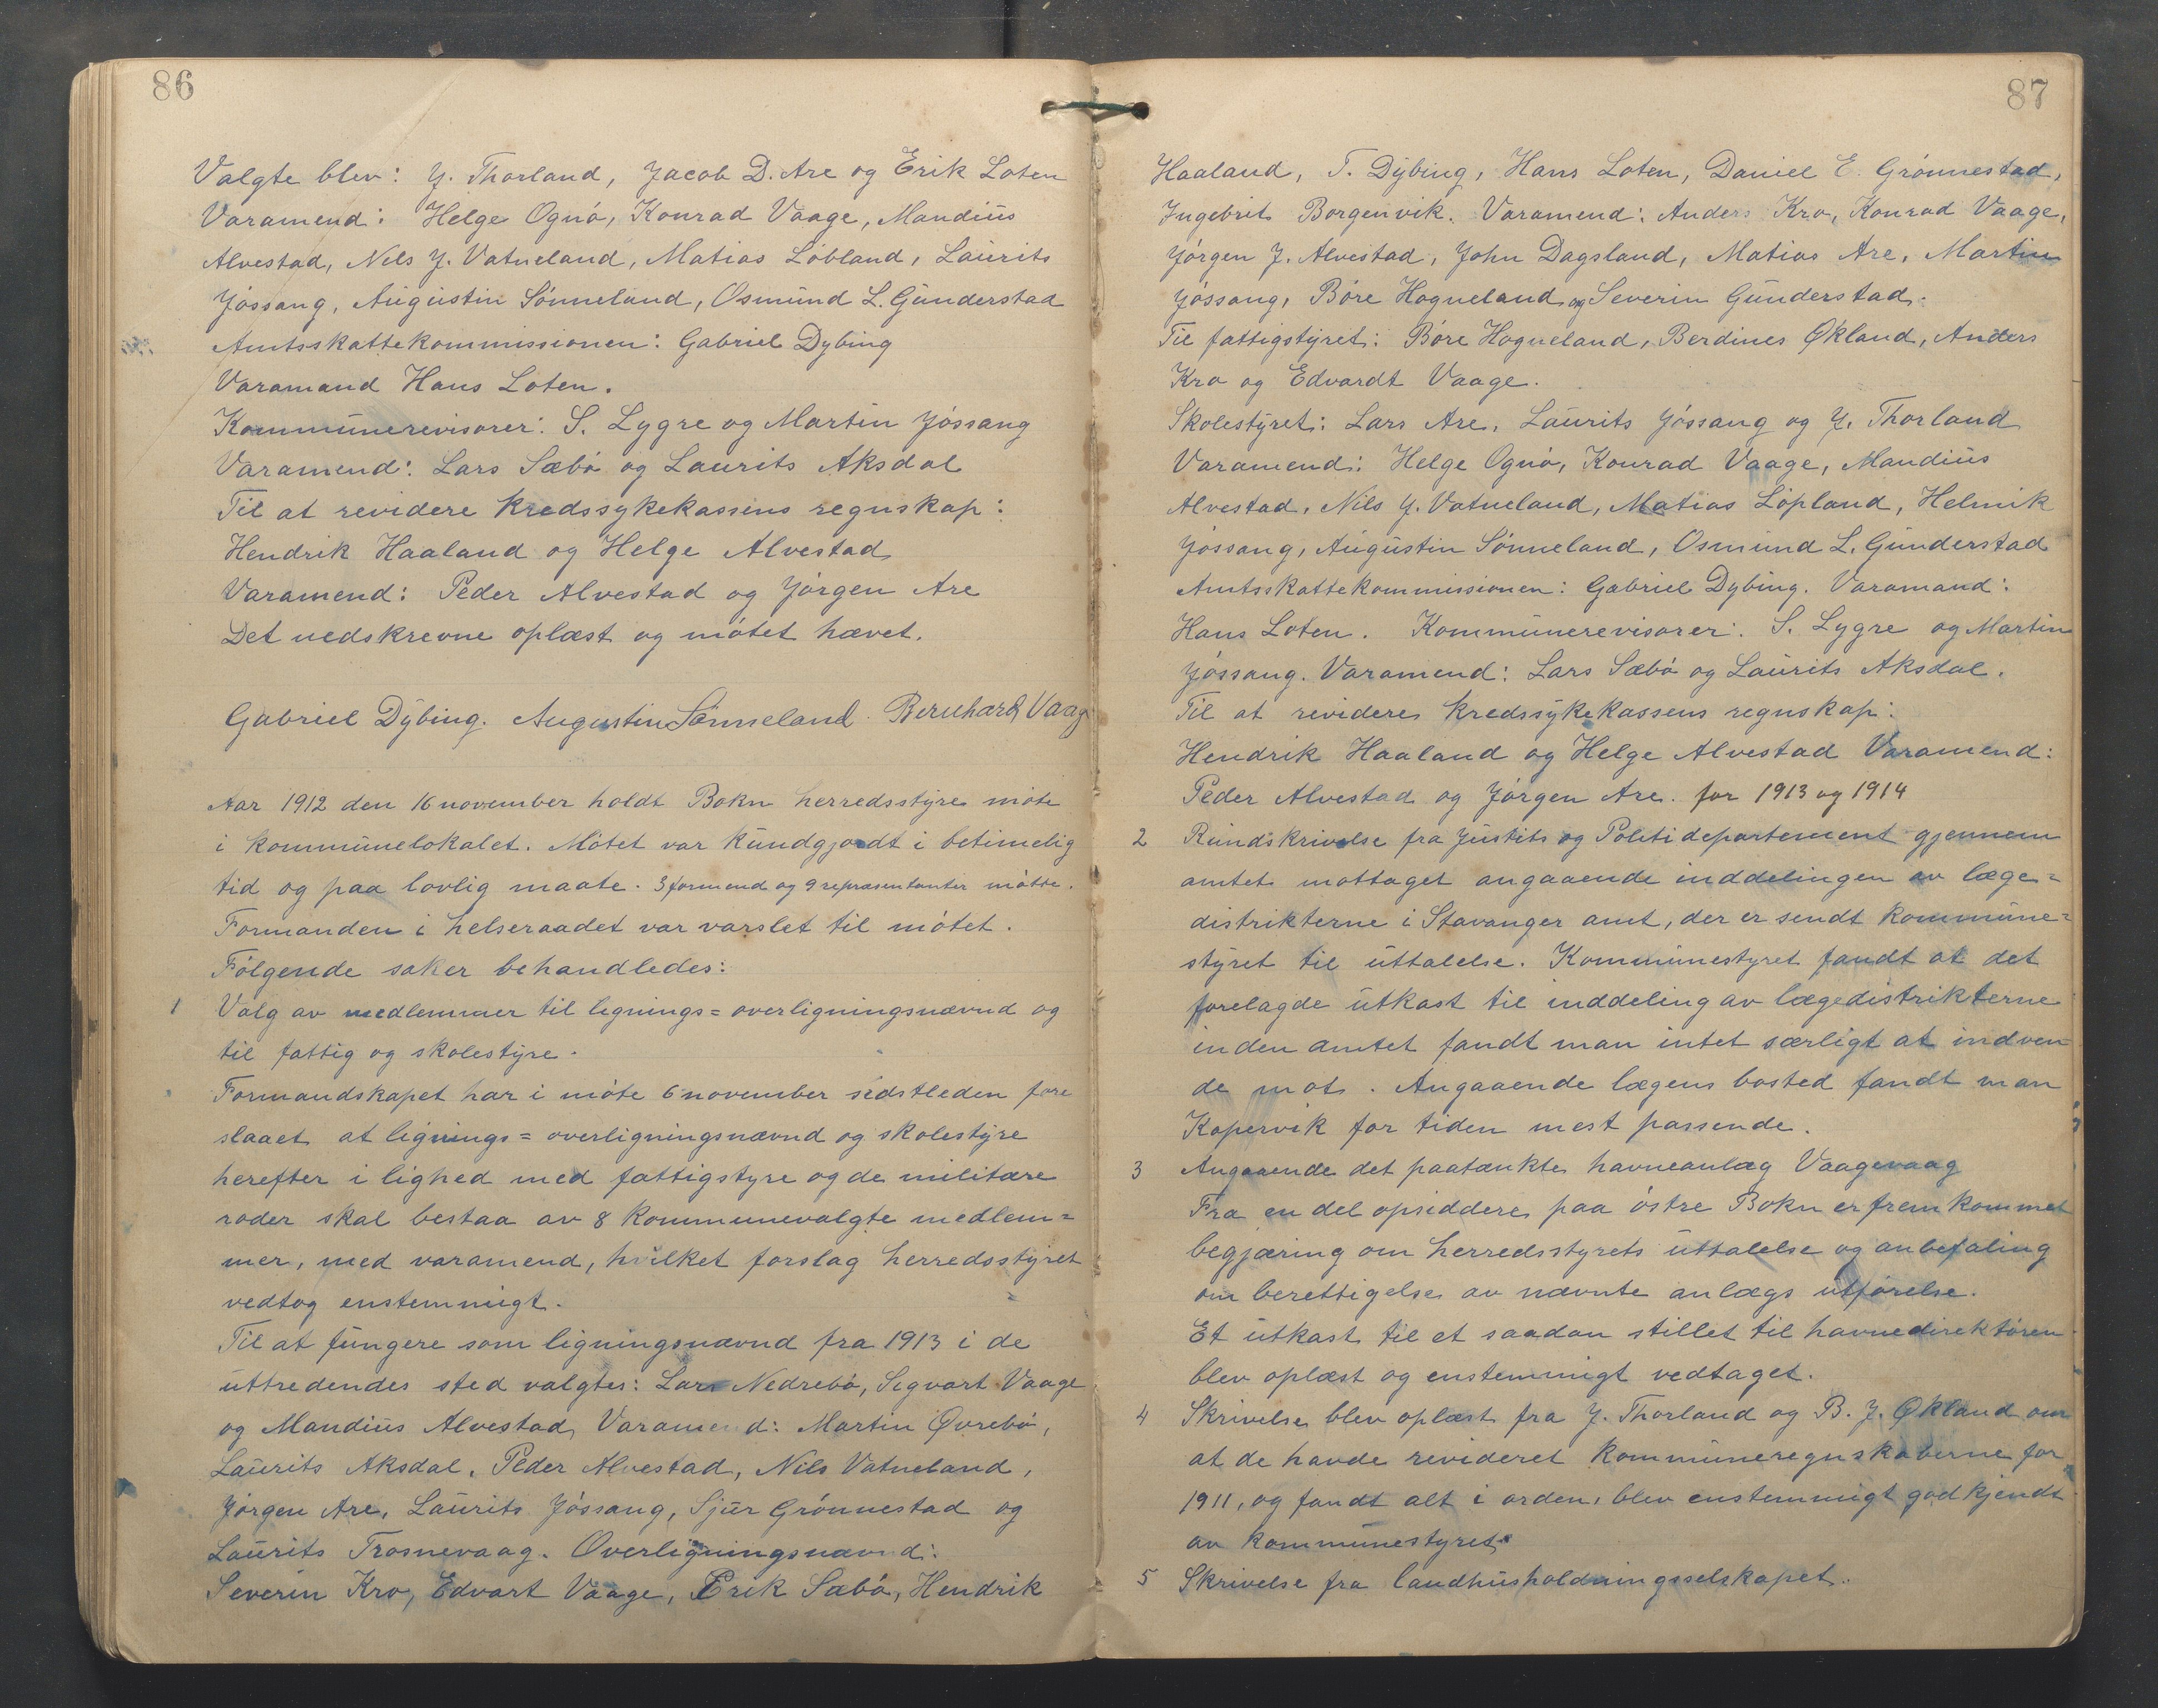 86
Valgte blev: J. Thorland, Jacob D. Are og Erik Loten
Varamend: Helge Ognø, Konrad Vaage, Mandius
Alvestad, Nils J. Vatneland, Matias Løbland, Laurits
Jøssang, Augustin Sønneland, Osmund L. Gunderstad
Amtsskattekommissionen: Gabriel Dybing
Varamand Hans Loten.
Kommunerevisorer: S. Lygre og Martin Jøssang
Varamend: Lars Sæbø og Laurits Aksdal
Til at revidere kredssykekassens regnskap:
Hendrik Haaland og Helge Alvestad
Varamend: Peder Alvestad og Jørgen Are
Det nedskrevne oplæst og møtet hævet.
Gabriel Dybing. Augustin Sønneland. Bernhard Vaag
Aar 1912 den 16 november holdt Bokn herredsstyre møte
i kommunelokalet. Møtet var kundgjordt i betimelig
tid og paa lovlig maate. 3 formend og 9 repræsentanter møtte.
Formanden i helseraadet var varslet til møtet.
Følgende saker behandledes:
1 Valg av medlemmer til lignings= overligningsnævnd og
til fattig og skolestyre.
Formandskapet har i møte 6 november sidstleden fore
slaaet at lignings= overligningsnævnd og skolestyre
herefter i lighed med fattigstyre og de militære
roder skal bestaa av 8 kommunevalgte medlem=
mer, med varamend, hvilket forslag herredsstyret
vedtog enstemmigt.
Til at fungere som ligningsnævnd fra 1913 i de
uttredendes sted valgtes: Lars Nedrebø, Segvart Vaage
og Mandius Alvestad, Varamend: Martin Øvrebø,
Laurits Aksdal, Peder Alvestad, Nils Vatneland,
Jørgen Are, Laurits Jøssang, Sjur Grønnestad og
Laurits Trosnevaag. Overligningsnævnd:
Severin Kro, Edvart Vaage, Erik Sæbø, Hendrik
87
Haaland, T. Dybing, Hans Loten, Daniel E. Grønnestad,
Ingebrit Borgenvik. Varamend: Anders Kro, Konrad Vaage,
Jørgen J. Alvestad, John Dagsland, Matias Are, Martin
Jøssang, Børe Hogneland og Severin Gunderstad.
Til fattigstyret: Børe Hogneland, Berdines Økland, Anders
Kro og Edvardt Vaage.
Skolestyret: Lars Are, Laurits Jøssang og J. Thorland
Varamend: Helge Ognø, Konrad Vaage, Mandius
Alvestad, Nils J. Vatneland, Matias Løpland, Helmik
Jøssang, Augustin Sønneland, Osmund L. Gunderstad
Amtsskattekommissionen: Gabriel Dybing. Varamand:
Hans Loten. Kommunerevisorer: S. Lygre og Martin
Jøssang. Varamend: Lars Sæbø og Laurits Aksdal.
Til at revidere kredssykekassens regnskap:
Hendrik Haaland og Helge Alvestad Varamend:
Peder Alvestad og Jørgen Are. for 1913 og 1914
2 Rundskrivelse fra Justits og Politidepartement gjennem
amtet mottaget angaaende inddelingen av læge=
distrikterne i Stavanger amt, der er sendt kommune=
styret til uttalelse. Kommunestyret fandt at det
forelagde utkast til inddeling av lægedistrikterne
inden amtet fandt man intet særligt at indven
de mot. Angaaende lægens bosted fandt man
Kopervik for tiden mest passende.
3 Angaaende det paatænkte havneanlæg Vaagevaag
Fra en del opsiddere paa østre Bokn er fremkommet
begjæring om herredsstyrets uttalelse og anbefaling
om berettigelse av nævnte anlægs utførelse.
Et utkast til et saadan stillet til havnedirektøren
blev oplæst og enstemmigt vedtaget.
4 Skrivelse blev oplæst fra J. Thorland og B. J. Økland om
at de havde revideret kommuneregnskaberne for
1911, og fandt alt i orden, blev enstemmigt godkjendt
av kommunestyret.
5 Skrivelse fra landhusholdningsselskapet.